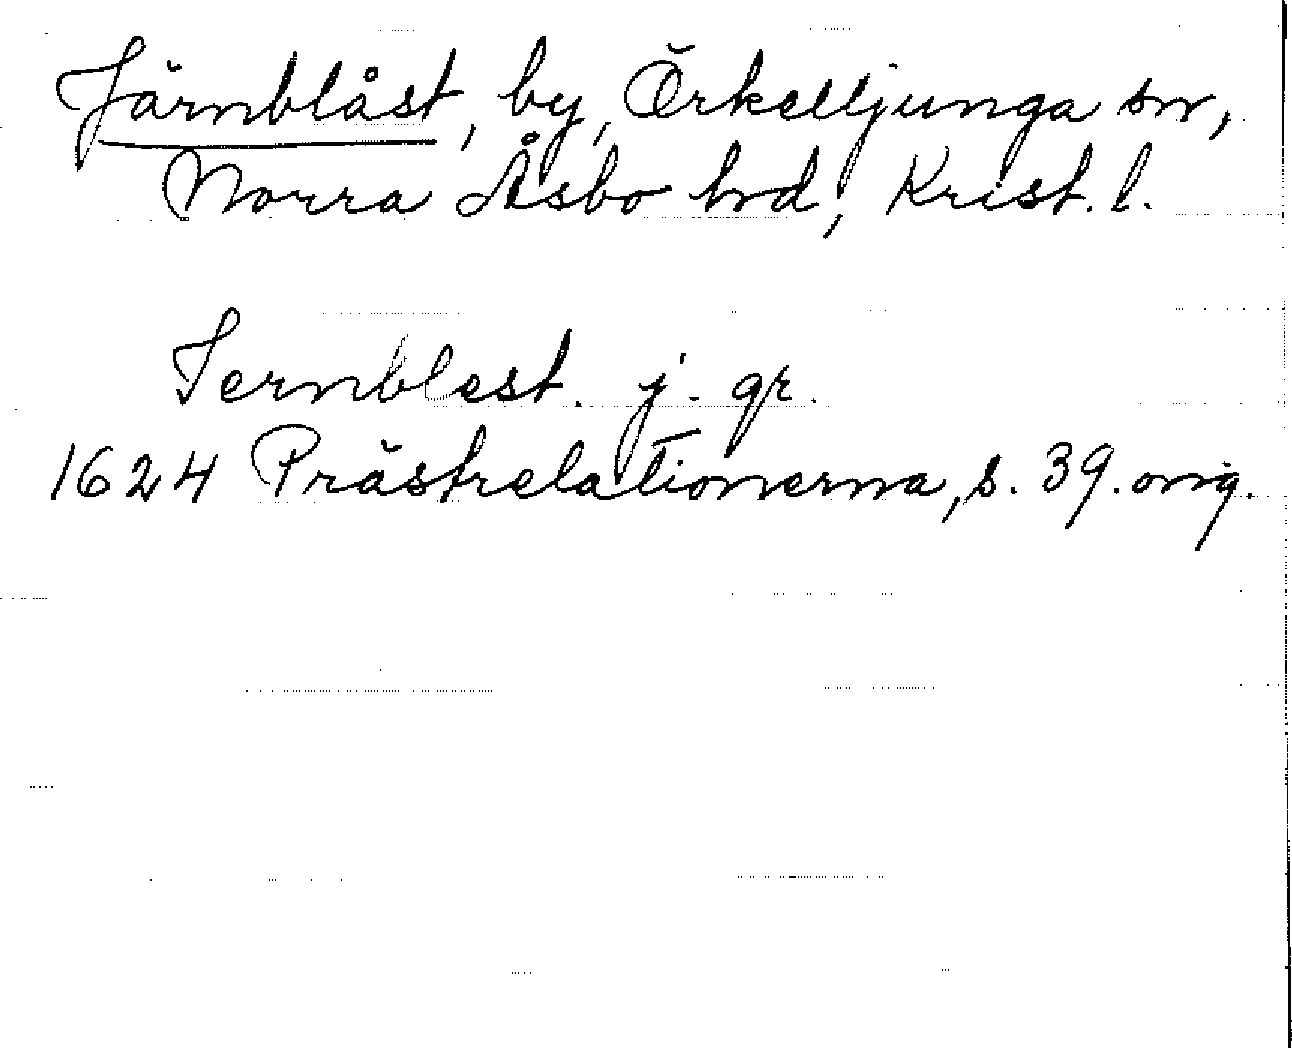 Järnblåst, by, Örkelljunga sn,
Norra Åsbo hrd, Krist. l.
Iernblest. j. gr.
1624 Prästrelationerna, s. 39. orig.